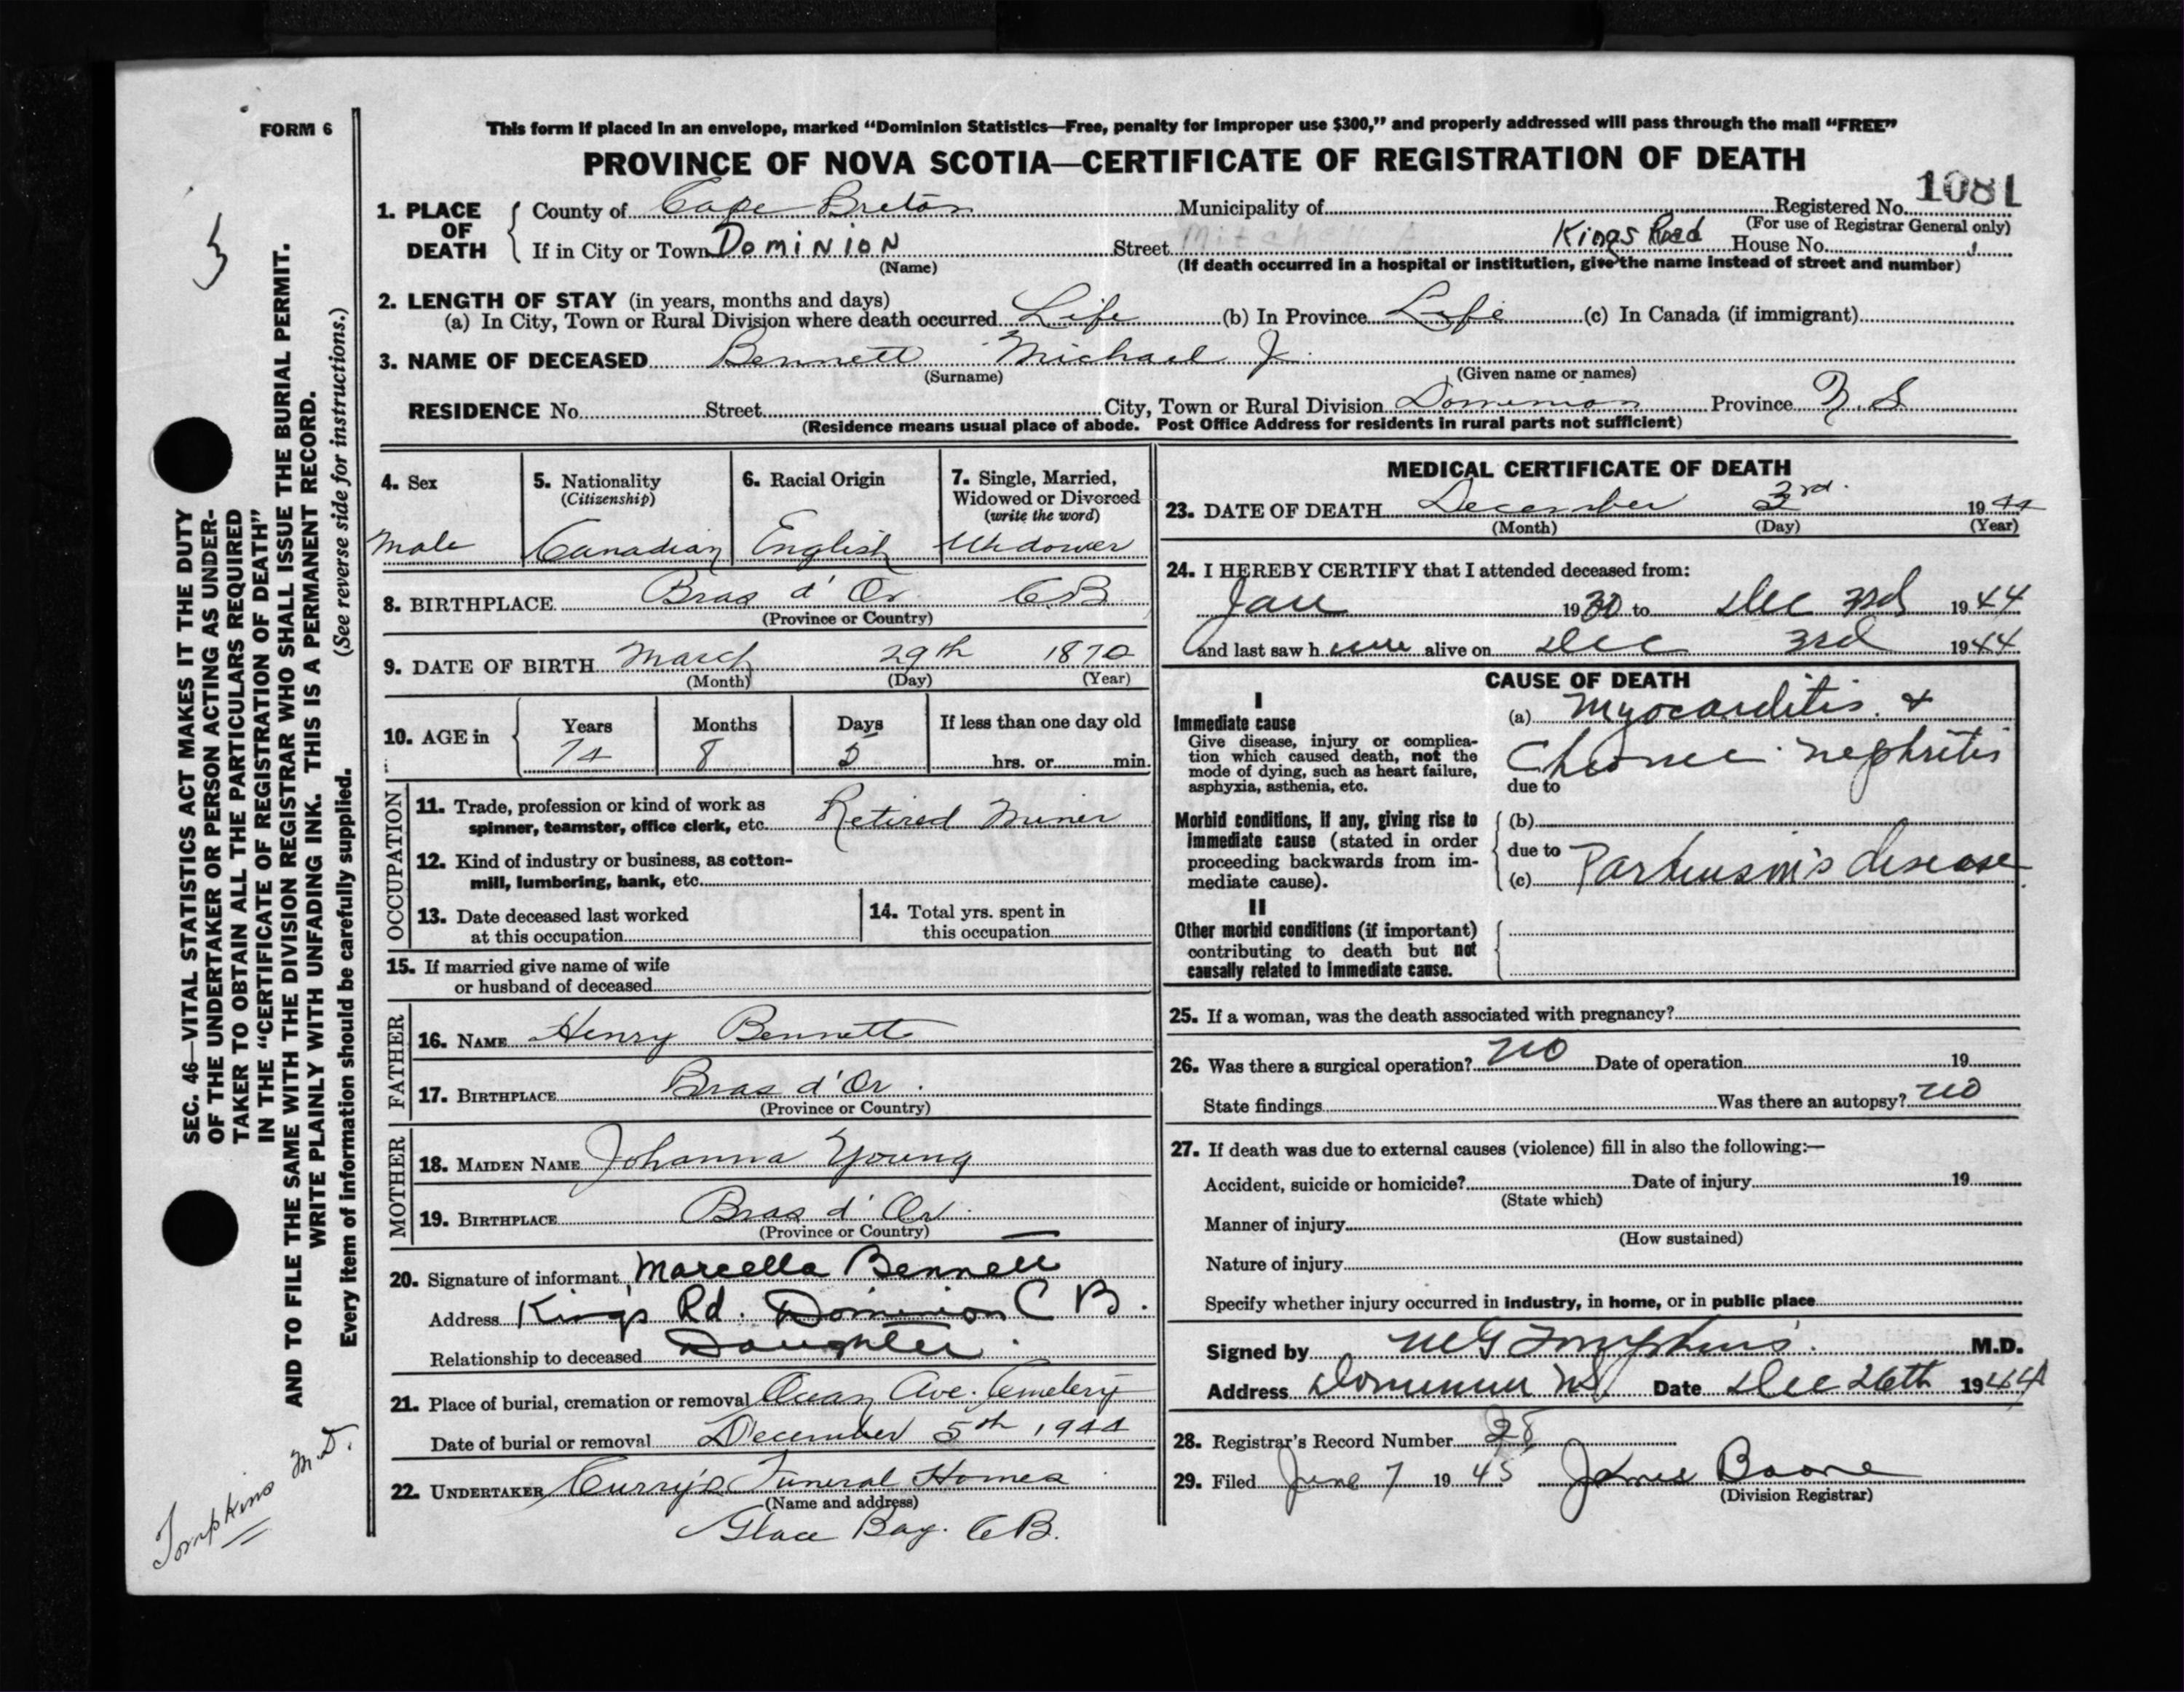 FORM 6
This form if placed in an envelope, marked “Dominion Statistics—Free, penalty for improper use $300,” and properly addressed will pass through the mail “FREE”
PROVINCE OF NOVA SCOTIA—CERTIFICATE OF REGISTRATION OF DEATH
1081
1. PLACE OF DEATH
County of Cape Breton Municipality of Registered No.
(For use of Registrar General only)
If in City or Town DOMINION Street Mitchell A. Kings Road House No.
(Name) (If death occurred in a hospital or institution, give the name instead of street and number)
2. LENGTH OF STAY (in years, months and days)
(a) In City, Town or Rural Division where death occurred Life (b) In Province Life (c) In Canada (if immigrant)
3. NAME OF DECEASED Bennett Michael J.
(Surname) (Given name or names)
RESIDENCE No. Street City, Town or Rural Division Dominion Province N.S.
(Residence means usual place of abode. Post Office Address for residents in rural parts not sufficient)
4. Sex
Male
5. Nationality
(Citizenship)
Canadian
6. Racial Origin
English
7. Single, Married,
Widowed or Divorced
(write the word)
Widower
8. BIRTHPLACE Bras d'Or C.B
(Province or Country)
9. DATE OF BIRTH March 29th 1870
(Month) (Day) (Year)
10. AGE in
Years Months Days If less than one day old
74 8 5 hrs. or min.
OCCUPATION
11. Trade, profession or kind of work as
spinner, teamster, office clerk, etc. Retired Miner
12. Kind of industry or business, as cotton-
mill, lumbering, bank, etc.
13. Date deceased last worked
at this occupation
14. Total yrs. spent in
this occupation
15. If married give name of wife
or husband of deceased
FATHER
16. NAME Henry Bennett
17. BIRTHPLACE Bras d'Or.
(Province or Country)
MOTHER
18. MAIDEN NAME Johanna Young
19. BIRTHPLACE Bras d'Or.
(Province or Country)
20. Signature of informant Marcella Bennett
Address King's Rd. Dominion C B.
Relationship to deceased Daughter.
21. Place of burial, cremation or removal Ocean Ave. Cemetery
Date of burial or removal December 5th 1944
22. UNDERTAKER Curry's Funeral Homes
(Name and address)
Glace Bay. C.B.
MEDICAL CERTIFICATE OF DEATH
23. DATE OF DEATH December 3rd. 1944
(Month) (Day) (Year)
24. I HEREBY CERTIFY that I attended deceased from:
Jan 1930 to Dec 3rd 1944
and last saw h im alive on Dec 3rd 1944
CAUSE OF DEATH
I
Immediate cause
Give disease, injury or complica-
tion which caused death, not the
mode of dying, such as heart failure,
asphyxia, asthenia, etc.
(a) Myocarditis. &
Chronic nephritis
due to
Morbid conditions, if any, giving rise to
immediate cause (stated in order
proceeding backwards from im-
mediate cause).
(b)
due to
(c) Parkinson's disease
II
Other morbid conditions (if important)
contributing to death but not
causally related to immediate cause.
25. If a woman, was the death associated with pregnancy?
26. Was there a surgical operation? no Date of operation 19
State findings Was there an autopsy? no
27. If death was due to external causes (violence) fill in also the following:—
Accident, suicide or homicide? Date of injury 19
(State which)
Manner of injury
(How sustained)
Nature of injury
Specify whether injury occurred in industry, in home, or in public place
Signed by M G Tompkins. M.D.
Address Dominion N.S. Date Dec 26th 1944
28. Registrar's Record Number 28
29. Filed June 7 1945 James Boone
(Division Registrar)
SEC. 46—VITAL STATISTICS ACT MAKES IT THE DUTY
OF THE UNDERTAKER OR PERSON ACTING AS UNDER-
TAKER TO OBTAIN ALL THE PARTICULARS REQUIRED
IN THE “CERTIFICATE OF REGISTRATION OF DEATH”
AND TO FILE THE SAME WITH THE DIVISION REGISTRAR WHO SHALL ISSUE THE BURIAL PERMIT.
WRITE PLAINLY WITH UNFADING INK. THIS IS A PERMANENT RECORD.
Every item of information should be carefully supplied. (See reverse side for instructions.)
Tompkins M.D.